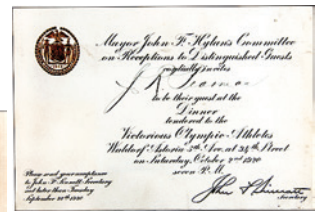 Mayor John F. Hylan's Committee
on Receptions to Distinguished Guests
cordially invites
J.
to be their guest at the
Dinner
tendered to the
Victorious Olympic Athletes
Waldorf Astoria 5th Ave. at 34th Street
on Saturday, October 2nd 1920
seven P.M.
Please send your acceptance
to John F. Sinnott, Secretary
not later than Tuesday
September 28th 1920
John F. Sinnott
Secretary